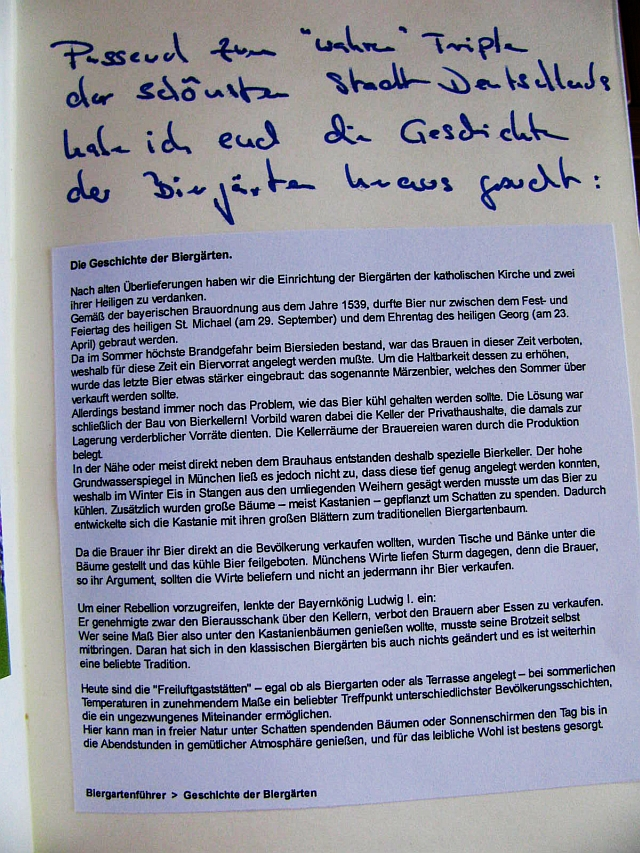 Passend zum "wahren" Triple
der schönsten Stadt Deutschlands
habe ich euch die Geschichte
der Biergärten heraus gesucht:
Die Geschichte der Biergärten.
Nach alten Überlieferungen haben wir die Einrichtung der Biergärten der katholischen Kirche und zwei
ihrer Heiligen zu verdanken.
Gemäß der bayerischen Brauordnung aus dem Jahre 1539, durfte Bier nur zwischen dem Fest- und
Feiertag des heiligen St. Michael (am 29. September) und dem Ehrentag des heiligen Georg (am 23.
April) gebraut werden.
Da im Sommer höchste Brandgefahr beim Biersieden bestand, war das Brauen in dieser Zeit verboten,
weshalb für diese Zeit ein Biervorrat angelegt werden mußte. Um die Haltbarkeit dessen zu erhöhen,
wurde das letzte Bier etwas stärker eingebraut: das sogenannte Märzenbier, welches den Sommer über
verkauft werden sollte.
Allerdings bestand immer noch das Problem, wie das Bier kühl gehalten werden sollte. Die Lösung war
schließlich der Bau von Bierkellern! Vorbild waren dabei die Keller der Privathaushalte, die damals zur
Lagerung verderblicher Vorräte dienten. Die Kellerräume der Brauereien waren durch die Produktion
belegt.
In der Nähe oder meist direkt neben dem Brauhaus entstanden deshalb spezielle Bierkeller. Der hohe
Grundwasserspiegel in München ließ es jedoch nicht zu, dass diese tief genug angelegt werden konnten,
weshalb im Winter Eis in Stangen aus den umliegenden Weihern gesägt werden musste um das Bier zu
kühlen. Zusätzlich wurden große Bäume – meist Kastanien – gepflanzt um Schatten zu spenden. Dadurch
entwickelte sich die Kastanie mit ihren großen Blättern zum traditionellen Biergartenbaum.
Da die Brauer ihr Bier direkt an die Bevölkerung verkaufen wollten, wurden Tische und Bänke unter die
Bäume gestellt und das kühle Bier feilgeboten. Münchens Wirte liefen Sturm dagegen, denn die Brauer,
so ihr Argument, sollten die Wirte beliefern und nicht an jedermann ihr Bier verkaufen.
Um einer Rebellion vorzugreifen, lenkte der Bayernkönig Ludwig I. ein:
Er genehmigte zwar den Bierausschank über den Kellern, verbot den Brauern aber Essen zu verkaufen.
Wer seine Maß Bier also unter den Kastanienbäumen genießen wollte, musste seine Brotzeit selbst
mitbringen. Daran hat sich in den klassischen Biergärten bis auch nichts geändert und es ist weiterhin
eine beliebte Tradition.
Heute sind die "Freiluftgaststätten" – egal ob als Biergarten oder als Terrasse angelegt – bei sommerlichen
Temperaturen in zunehmendem Maße ein beliebter Treffpunkt unterschiedlichster Bevölkerungsschichten,
die ein ungezwungenes Miteinander ermöglichen.
Hier kann man in freier Natur unter Schatten spendenden Bäumen oder Sonnenschirmen den Tag bis in
die Abendstunden in gemütlicher Atmosphäre genießen, und für das leibliche Wohl ist bestens gesorgt.
Biergartenführer > Geschichte der Biergärten